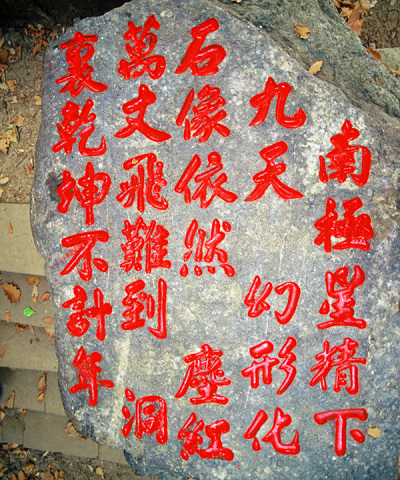 南極星精下
九天 幻形化
石像依然 塵紅
萬丈飛難到 洞
裏乾坤不計年